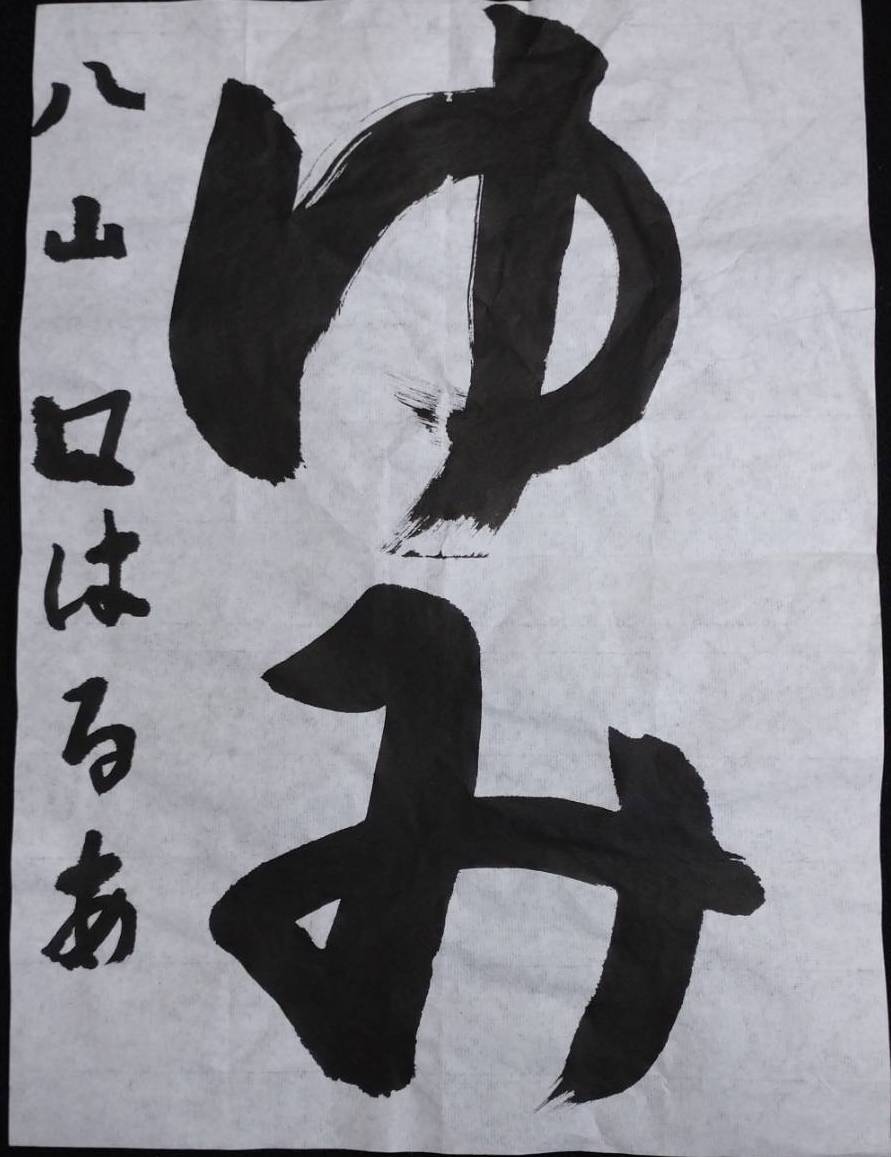 ゆみ
八山口はるあ